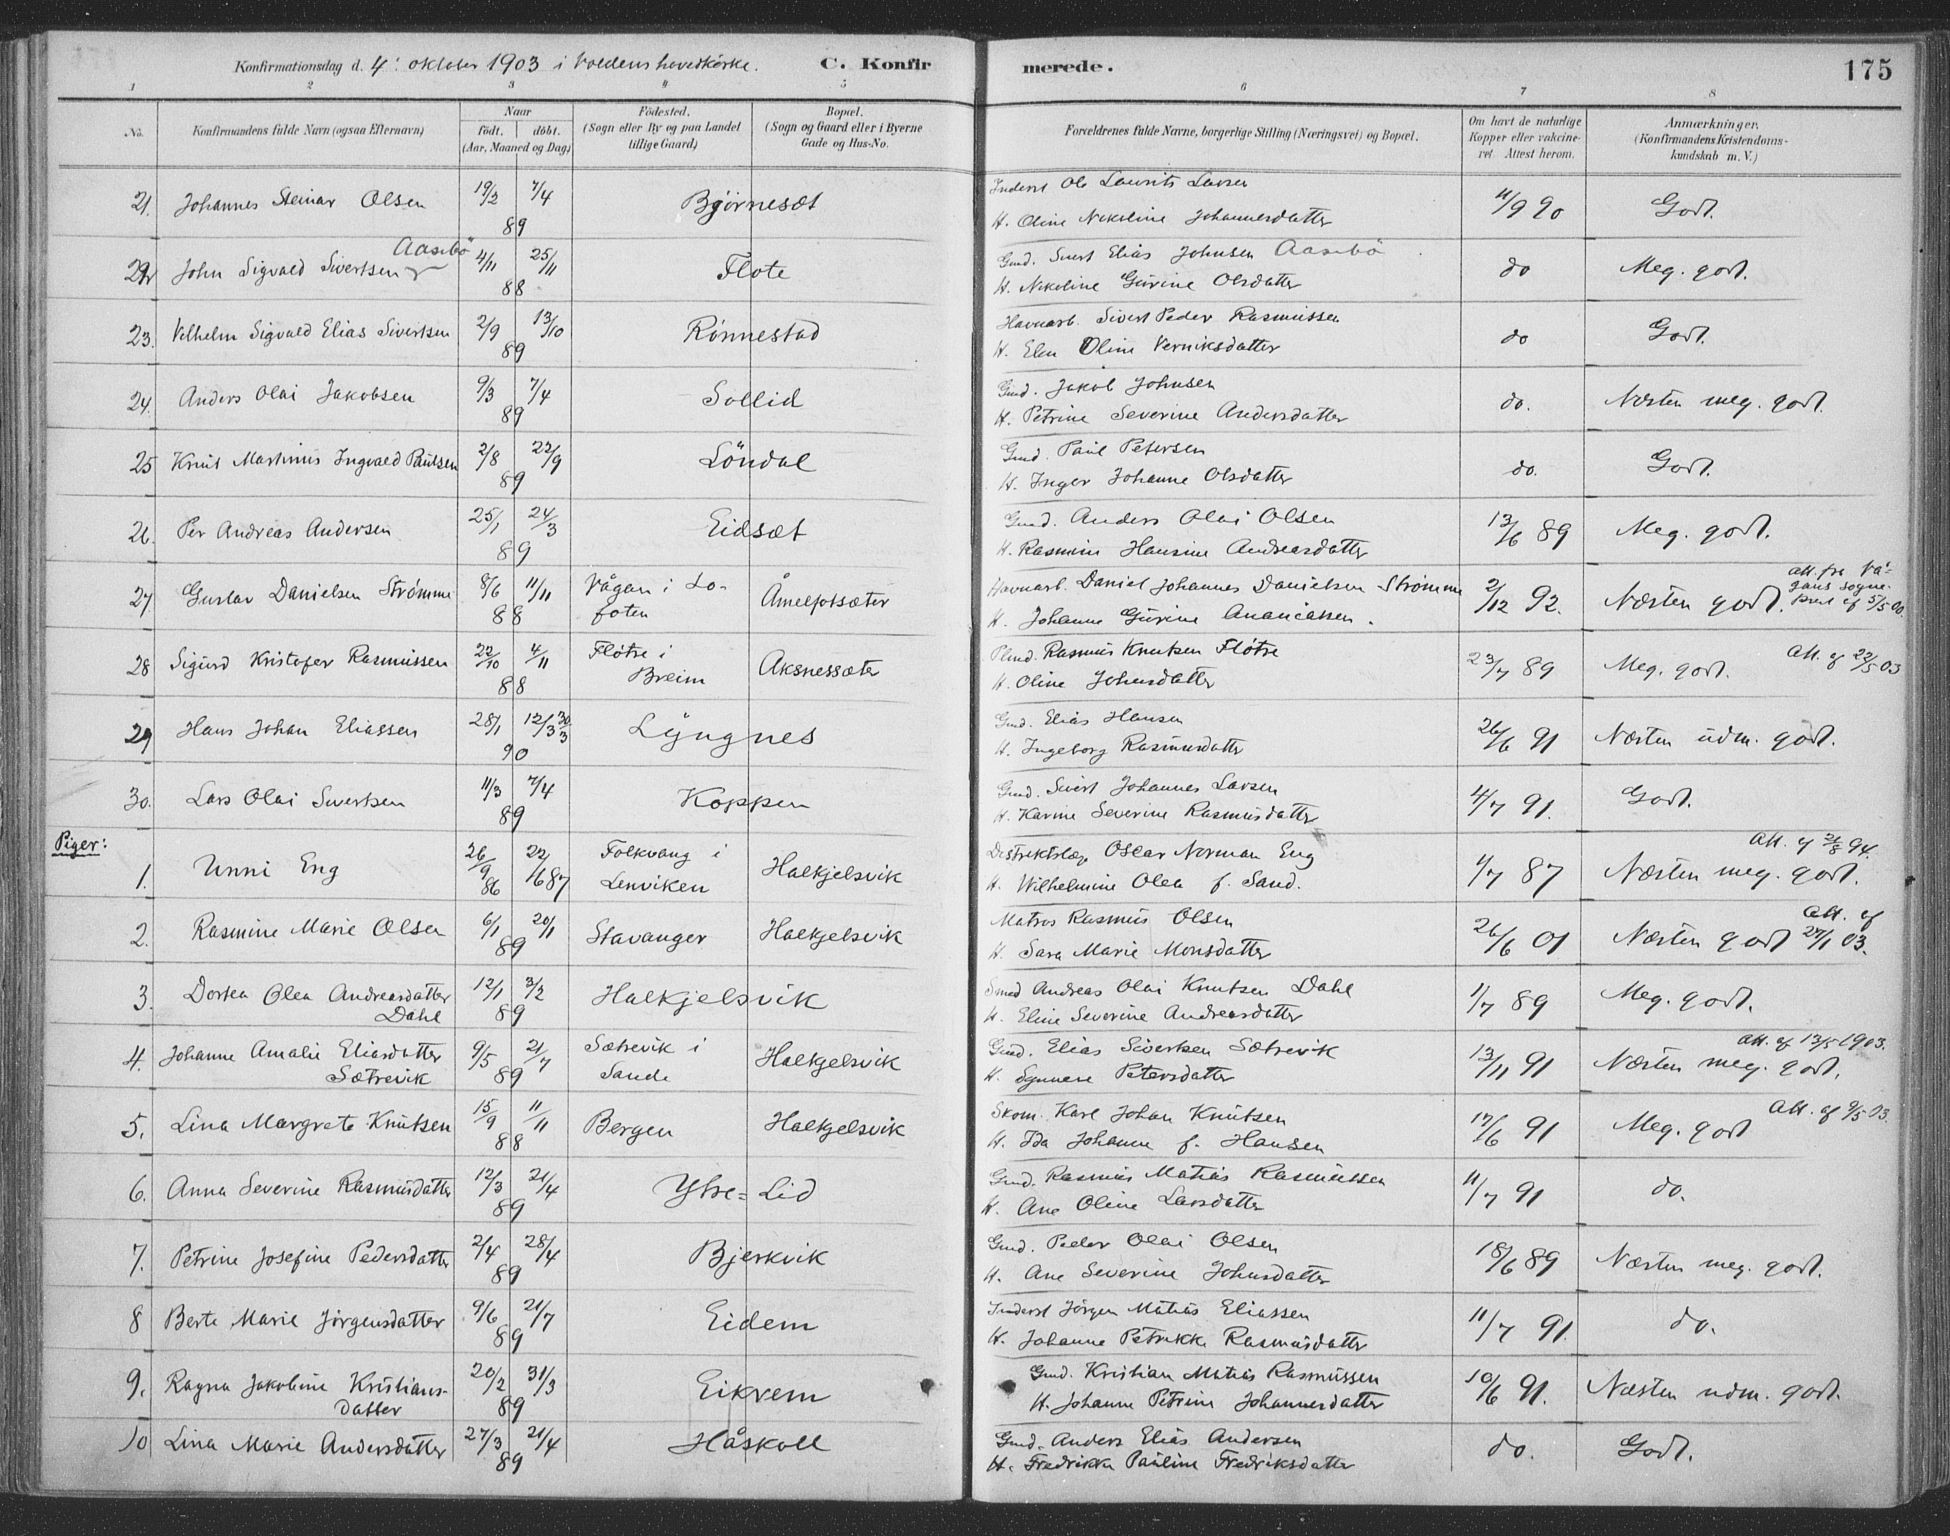 Konfirmationsdag d. 4. oktober 1903 i Voldens hovedkirke. C. Konfir merede. 175
1 2 3 4 5 6 7 8
No. Konfirmandens fulde Navn (ogsaa Efternavn) Naar födt. döbt. (Aar, Maaned og Dag) Födested. (Sogn eller By og paa Landet tillige Gaard) Bopæl. (Sogn og Gaard eller i Byerne Gade og Hus-No. Forældrenes fulde Navne, borgerlige Stilling (Næringsvei) og Bopæl. Om havt de naturlige Kopper eller vakcineret. Attest herom. Anmærkninger. (Konfirmandens Kristendomskundskab m. V.)
21. Johannes Steinar Olsen 19/2 7/4 89 Bjørnesæt Inderst Ole Laurits Larsen 11/9 90 Godt.
H. Oline Nekoline Johannesdatter
22 John Sigvald Sivertsen Aasebö 4/11 25/11 88 Flote Gmd. Sivert Elias Johnsen Aasebö do Meg. godt.
H. Nekoline Gurine Olsdatter
23. Vilhelm Sigvald Elias Sivertsen 2/9 13/10 89 Rønnestad Havnarb. Sivert Peder Rasmussen do Godt.
H. Elen Oline Verniksdatter
24. Anders Olai Jakobsen 9/3 7/4 89 Sollid Gmd. Jakob Johnsen do. Næsten meg. godt.
H. Petrine Severine Andersdatter
25 Knut Martinus Ingvald Paulsen 2/8 22/9 89 Löndal Gmd. Paul Petersen do. Godt.
H. Inger Johanne Olsdatter
26. Per Andreas Andersen 25/1 24/3 89 Eidsæt Gmd. Anders Olai Olsen 13/6 89 Meg. godt.
H. Rasmine Hansine Andreasdatter
27 Gustav Danielsen Strømme 8/6 11/11 88 Vågan i Lofoten Åmelfotsæter Havnarb. Daniel Johannes Danielsen Strømme 2/12 92. Næsten godt. att. fra Vågans sogneprest af 5/5 00.
H. Johanne Gurine Ananiassen.
28 Sigurd Kristofer Rasmussen 22/10 4/11 88 Fløtre i Breim Aksnessæter Plmd. Rasmus Knutsen Fløtre 23/7 89 Meg. godt. Att. af 22/5 03
H. Oline Johnsdatter
29 Hans Johan Eliassen 28/1 12/3 30/3 90 Lyngnes Gmd. Elias Hansen 26/6 91 Næsten udm. godt.
H. Ingeborg Rasmusdatter
30. Lars Olai Sivertsen 11/3 7/4 89 Koppen Gmd. Sivert Johannes Larsen 4/7 91. Godt.
H. Karine Severine Rasmusdatter
Piger:
1. Unni Eng 26/9 86 22/6 87 Folkvang i Lenviken Halkjelsvik Distriktslæge Oscar Norman Eng 4/7 87 Næsten meg. godt. Att. af 21/8 94.
H. Wilhelmine Olea f. Sand.
2. Rasmine Marie Olsen 6/1 20/1 89 Stavanger Halkjelsvik Matros Rasmus Olsen 26/6 01 Næsten godt Att. af 27/1 03.
H. Sara Marie Monsdatter
3. Dortea Olea Andreasdatter Dahl 12/1 3/2 89 Halkjelsvik Smed Andreas Olai Knutsen Dahl 1/7 89 Meg. godt.
H. Eline Severine Andreasdatter
4. Johanne Amalie Eliasdatter Sætrevik 9/5 21/7 89 Sætrevik i Sande Halkjelsvik Gmd. Elias Sivertsen Sætrevik 13/11 91 Næsten meg. godt. Att. af 13/5 1903.
H. Synnere Petersdatter
5. Lina Margrete Knutsen 15/9 11/11 88 Bergen Halkjelsvik Skom. Karl Johan Knutsen 17/6 91 Meg. godt Att. af 9/5 03.
H. Ida Johanne f. Hansen
6. Anna Severine Rasmusdatter 12/3 21/4 89 Ytre=Lid Gmd. Rasmus Matias Rasmussen 11/7 91 do.
H. Ane Oline Larsdatter
7. Petrine Josefine Pedersdatter 2/4 28/4 89 Bjerkvik Gmd. Peder Olai Olsen 18/6 89 Næsten meg. godt.
H. Ane Severine Johnsdatter
8 Berte Marie Jörgensdatter 9/6 21/7 89 Eidem Inderst Jörgen Matias Eliassen 11/7 91. do.
H. Johanne Petrikke Rasmusdatter
9. Ragna Jakobine Kristiansdatter 20/2 31/3 89 Eikrem Gmd. Kristian Matias Rasmussen 10/6 91. Næsten udm. godt.
H. Johanne Petrine Johannesdatter
10 Lina Marie Andersdatter 27/3 21/4 89 Håskoll Gmd. Anders Elias Andersen do. Godt.
H. Fredrikke Pauline Fredriksdatter